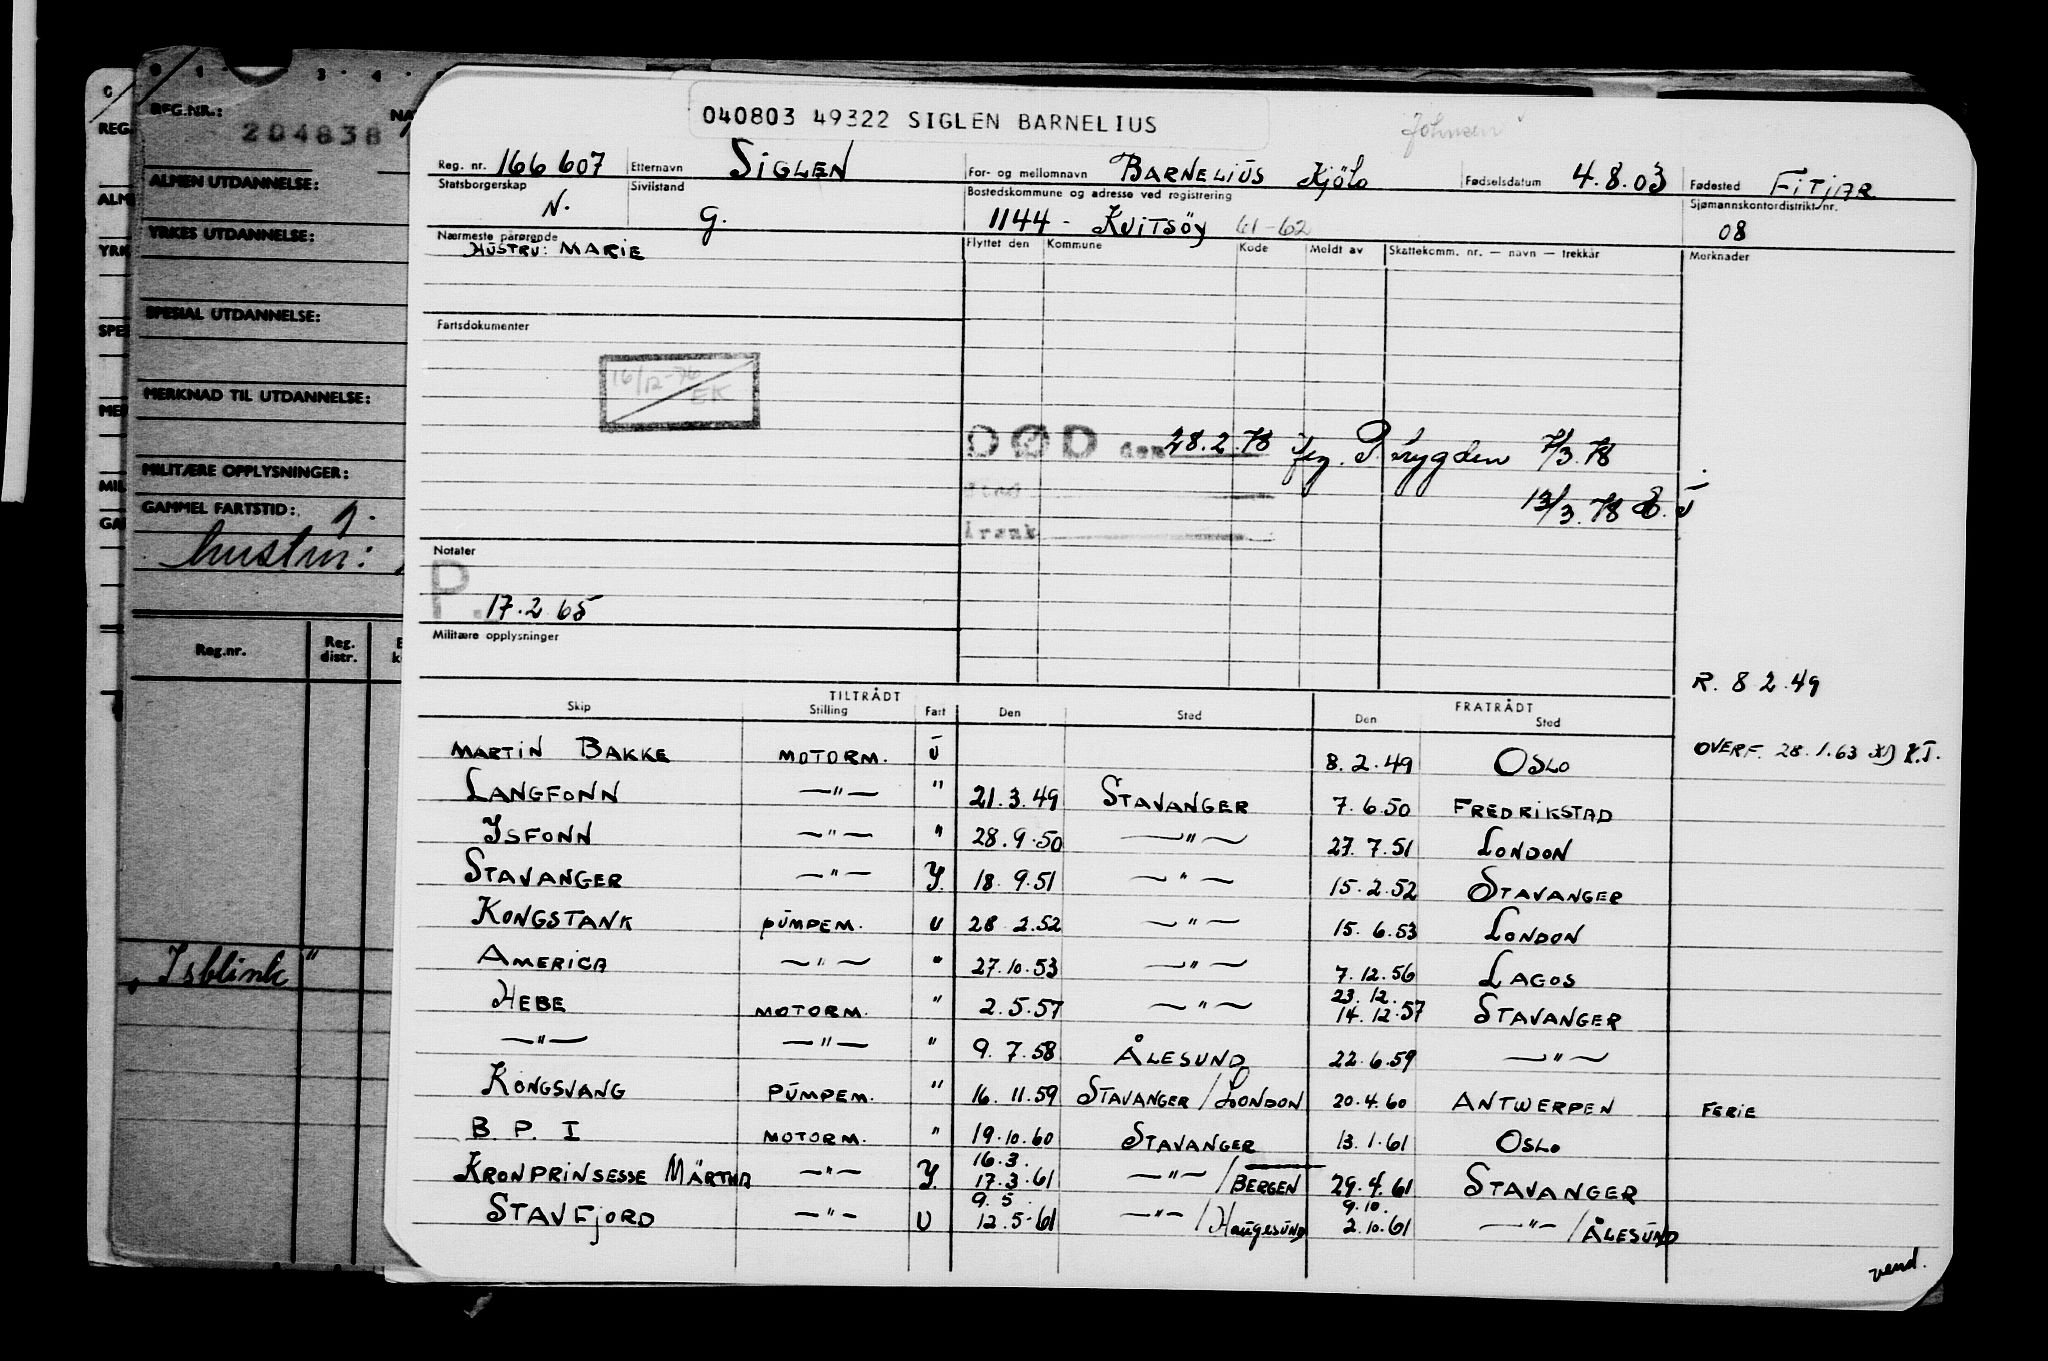 040803 49322 SIGLEN BARNELIUS
Johnsen
Reg. nr. 166 607 Etternavn SIGLEN For- og mellomnavn BARNELIUS Kjölo Fødselsdatum 4.8.03 Fødested FITJAR
Statsborgerskap N. Sivilstand G. Bostedskommune og adresse ved registrering 1144 - KVITSÖY 61-62 Sjømannskontordistrikt/nr. 08
Nærmeste pårørende HUSTRU: MARIE
Flyttet den Kommune Kode Meldt av Skattekomm. nr. — navn — trekkår Merknader
Fartsdokumenter
16/12-76 EK
DØD den 28.2.78 flg. P. trygden 7/3.78
Sted 13/3.78
Årsak
Notater
P. 17.2 65
Militære opplysninger
R. 8 2.49
TILTRÅDT FRATRÅDT
Skip Stilling Fart Den Sted Den Sted
MARTIN BAKKE MOTORM. U 8.2.49 OSLO OVERF. 28.1.63 K.J.
LANGFONN —"— " 21.3.49 STAVANGER 7.6.50 FREDRIKSTAD
ISFONN —"— " 28.9.50 —"— 27.7.51 LONDON
STAVANGER —"— Y. 18.9.51 —"— 15.2.52 STAVANGER
KONGSTANK PUMPEM. U 28 2.52 —"— 15.6.53 LONDON
AMERICA —"— " 27.10.53 —"— 7.12.56 LAGOS
HEBE MOTORM. " 2.5.57 —"— 23.12. 14.12.57 STAVANGER
—"— —"— " 9.7.58 ÅLESUND 22.6.59 —"—
KONGSVANG PUMPEM. " 16.11.59 STAVANGER/LONDON 20.4.60 ANTWERPEN FERIE
B. P. I MOTORM. " 19.10.60 STAVANGER 13.1.61 OSLO
KRONPRINSESSE MÄRTHA —"— Y. 16.3. 17.3.61 —"—/BERGEN 29.4.61 STAVANGER
STAVFJORD —"— U 9.5. 12.5.61 —"—/HAUGESUND 9.10. 2.10.61 —"—/ÅLESUND
vend.
REG.NR.: 204838
ALMEN UTDANNELSE:
YRKES UTDANNELSE:
SPESIAL UTDANNELSE:
MERKNAD TIL UTDANNELSE:
MILITÆRE OPPLYSNINGER:
GAMMEL FARTSTID: g.
hustru:
Reg.nr. Reg. distr.
Isblink "